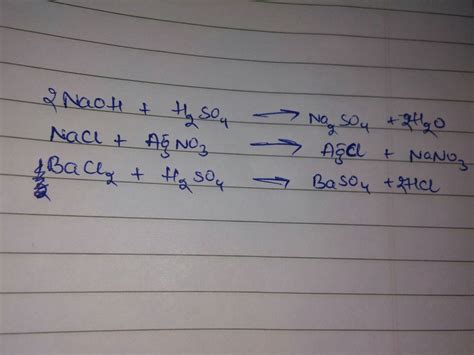 2NaOH + H₂SO₄ → Na₂SO₄ + 2H₂O
NaCl + AgNO₃ → AgCl + NaNO₃
BaCl₂ + H₂SO₄ → BaSO₄ + 2HCl